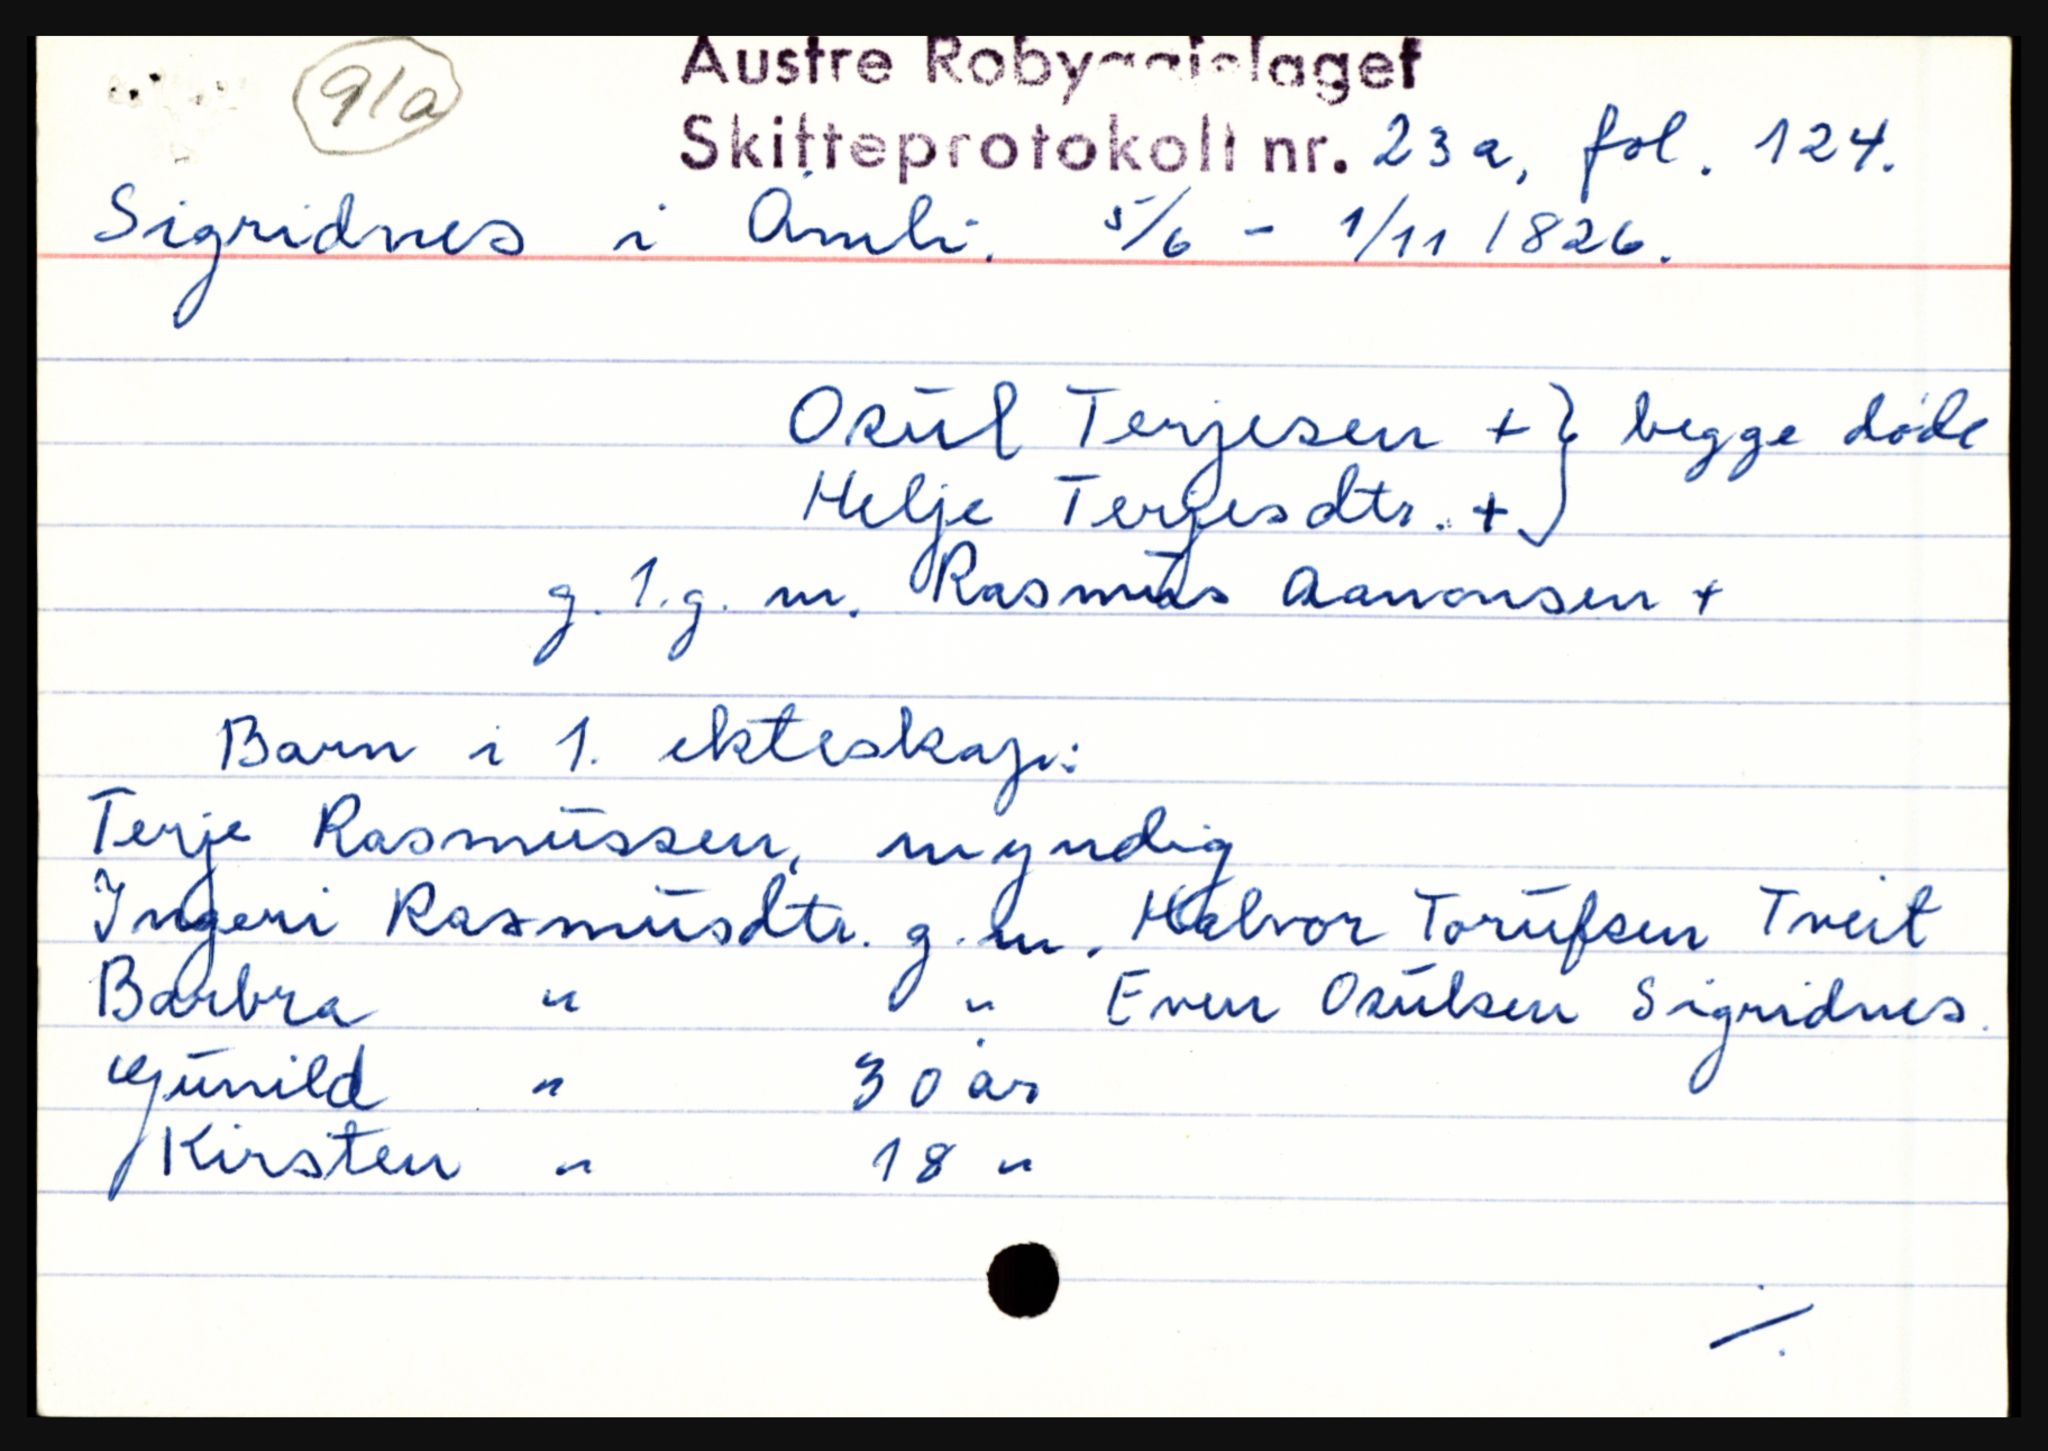 91a
Austre Robyggjelaget
Skifteprotokoll nr. 23a, fol. 124.
Sigridnes i Åmli. 5/6 - 1/11 1826.
Osul Terjesen + } begge døde
Helje Terjesdtr. + }
g. 1. g. m. Rasmus Aanonsen +
Barn i 1. ekteskap:
Terje Rasmussen, myndig
Ingeri Rasmusdtr. g. m. Halvor Torufsen Tveit
Barbra " " Even Osulsen Sigridnes.
Gunild " 30 år
Kirsten " 18 "
./.